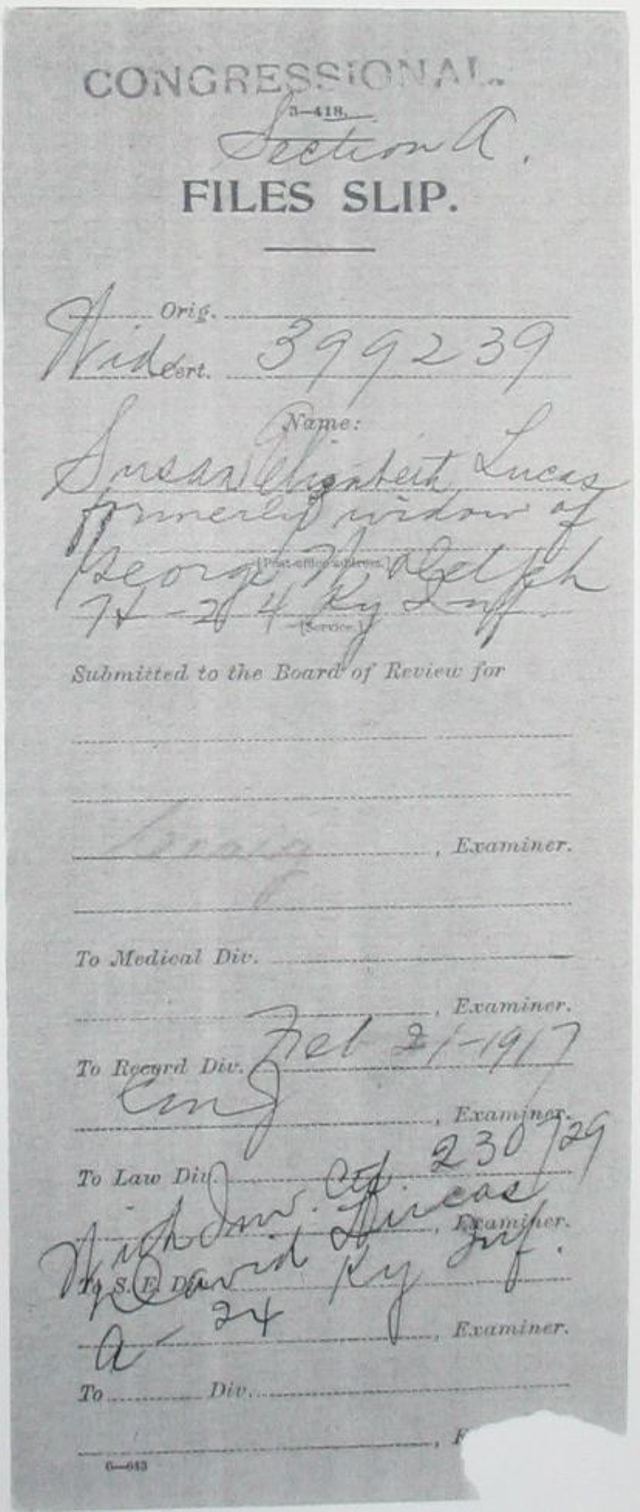 CONGRESSIONAL.
3—418.
Section A.
FILES SLIP.
Orig.
Wid Cert. 399239
Name:
Susan Elizabeth Lucas
formerly widow of
[Post-office address.]
George
H - 24 Ky Inf.
[Service.]
Submitted to the Board of Review for
, Examiner.
To Medical Div.
, Examiner.
To Record Div. Feb 21-1917
, Examiner.
To Law Div.
With Inv. Ctf 230729
, Examiner.
David Lucas
To S. E. Div.
A - 24 Ky Inf.
, Examiner.
To Div.
6—643